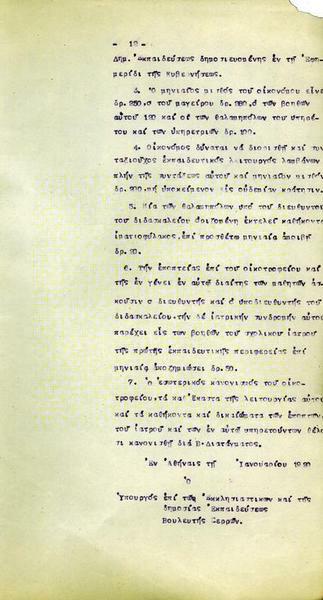 - 12 -
Δημ. Ἐκπαιδεύσεως δημοσιευομένης ἐν τῇ Ἐφη
μερίδι τῆς Κυβερνήσεως.
3. Ὁ μηνιαῖος μισθός τοῦ οἰκονόμου εἶνε
δρ. 250, ὁ τοῦ μαγείρου δρ. 250, ὁ τῶν βοηθῶν
αὐτοῦ 120 καί οἱ τῶν θαλαμηπόλων τοῦ ὑπηρέ
του καί τῶν ὑπηρετριῶν δρ. 100.
4. Οἰκονόμος δύναται νά διορισθῇ καί συν
ταξιοῦχος ἐκπαιδευτικός λειτουργός λαμβάνων
πλήν τῆς συντάξεως αὐτοῦ καί μηνιαῖον μισθόν
δρ. 200, μή ὑποκείμενον εἰς οὐδεμίαν κράτησιν.
5. Μία τῶν θαλαμηπόλων ὑπό τοῦ διευθυντοῦ
τοῦ διδασκαλείου ὁριζομένη ἐκτελεῖ καθήκοντα
ἱματιοφύλακος, ἐπί προσθέτῳ μηνιαίᾳ ἀμοιβῇ
δρ. 20.
6. Τήν ἐποπτείαν ἐπί τοῦ οἰκοτροφείου καί
τῆς ἐν γένει ἐν αὐτῷ διαίτης τῶν μαθητῶν ἀσ
κοῦσιν ὁ διευθυντής καί ὁ ὑποδιευθυντής τοῦ
διδασκαλείου, τήν δέ ἰατρικήν συνδρομήν αὐτοῦ
παρέχει εἷς τῶν βοηθῶν τοῦ σχολικοῦ ἰατροῦ
τῆς πρώτης ἐκπαιδευτικῆς περιφερείας ἐπί
μηνιαίᾳ ἀποζημιώσει δρ. 50.
7. Ὁ ἐσωτερικός κανονισμός τοῦ οἰκο
τροφείου, τά καθ' ἕκαστα τῆς λειτουργίας αὐτοῦ
καί τά καθήκοντα καί δικαιώματα τῶν ἐποπτῶν,
τοῦ ἰατροῦ καί τῶν ἐν αὐτῷ ὑπηρετούντων θέλου
σι κανονισθῆ διά Β. Διατάγματος.
Ἐν Ἀθήναις τῇ Ἰανουαρίου 1920
Ὁ
Ὑπουργός ἐπί τῶν Ἐκκλησιαστικῶν καί τῆς
δημοσίας Ἐκπαιδεύσεως
Βουλευτής Σερρῶν.